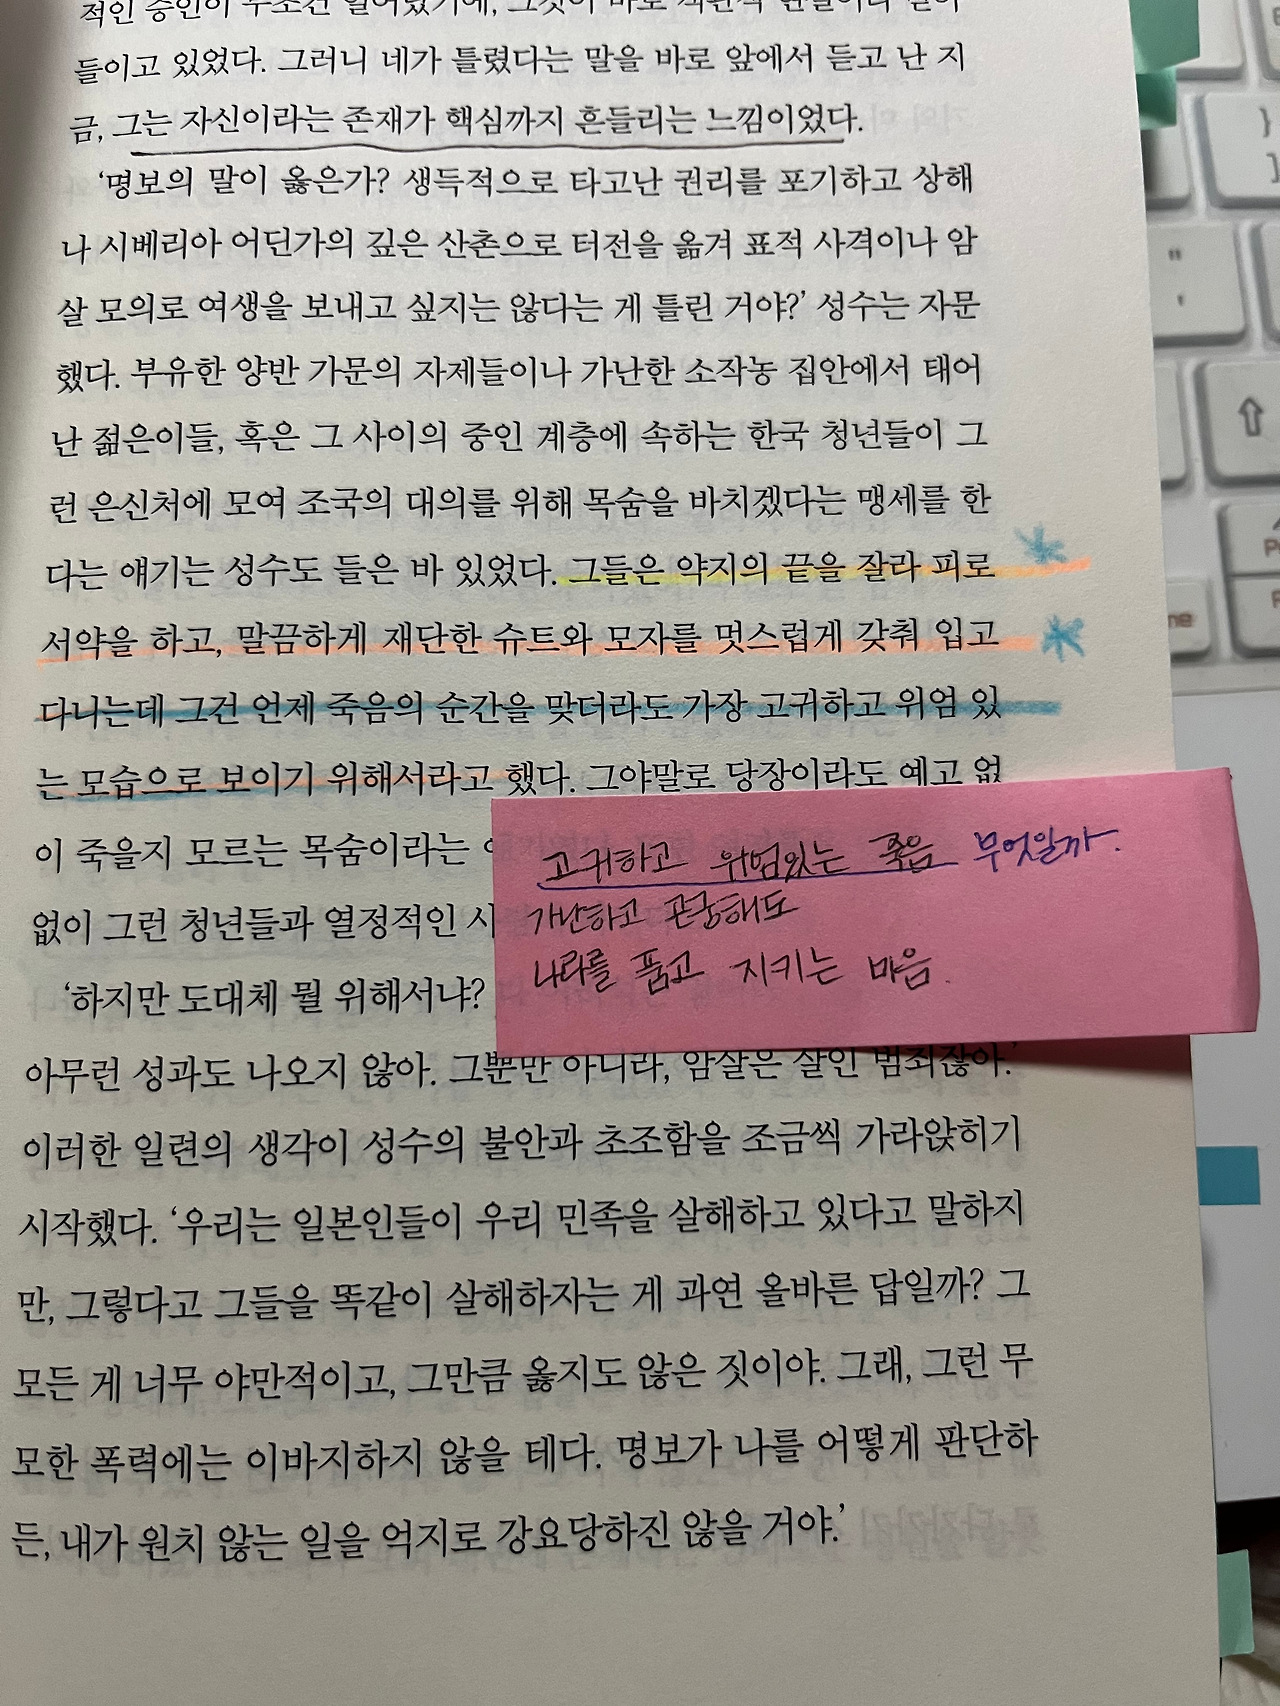 들이고 있었다. 그러니 네가 틀렸다는 말을 바로 앞에서 듣고 난 지
금, 그는 자신이라는 존재가 핵심까지 흔들리는 느낌이었다.
‘명보의 말이 옳은가? 생득적으로 타고난 권리를 포기하고 상해
나 시베리아 어딘가의 깊은 산촌으로 터전을 옮겨 표적 사격이나 암
살 모의로 여생을 보내고 싶지는 않다는 게 틀린 거야?’ 성수는 자문
했다. 부유한 양반 가문의 자제들이나 가난한 소작농 집안에서 태어
난 젊은이들, 혹은 그 사이의 중인 계층에 속하는 한국 청년들이 그
런 은신처에 모여 조국의 대의를 위해 목숨을 바치겠다는 맹세를 한
다는 얘기는 성수도 들은 바 있었다. 그들은 약지의 끝을 잘라 피로
서약을 하고, 말끔하게 재단한 슈트와 모자를 멋스럽게 갖춰 입고
다니는데 그건 언제 죽음의 순간을 맞더라도 가장 고귀하고 위엄 있
는 모습으로 보이기 위해서라고 했다. 그야말로 당장이라도 예고 없
이 죽을지 모르는 목숨이라는
없이 그런 청년들과 열정적인 시
‘하지만 도대체 뭘 위해서냐?
고귀하고 위엄있는 죽음 무엇일까.
가난하고 곤궁해도
나라를 품고 지키는 마음.
아무런 성과도 나오지 않아. 그뿐만 아니라, 암살은 살인 범죄잖아.’
이러한 일련의 생각이 성수의 불안과 초조함을 조금씩 가라앉히기
시작했다. ‘우리는 일본인들이 우리 민족을 살해하고 있다고 말하지
만, 그렇다고 그들을 똑같이 살해하자는 게 과연 올바른 답일까? 그
모든 게 너무 야만적이고, 그만큼 옳지도 않은 짓이야. 그래, 그런 무
모한 폭력에는 이바지하지 않을 테다. 명보가 나를 어떻게 판단하
든, 내가 원치 않는 일을 억지로 강요당하진 않을 거야.’